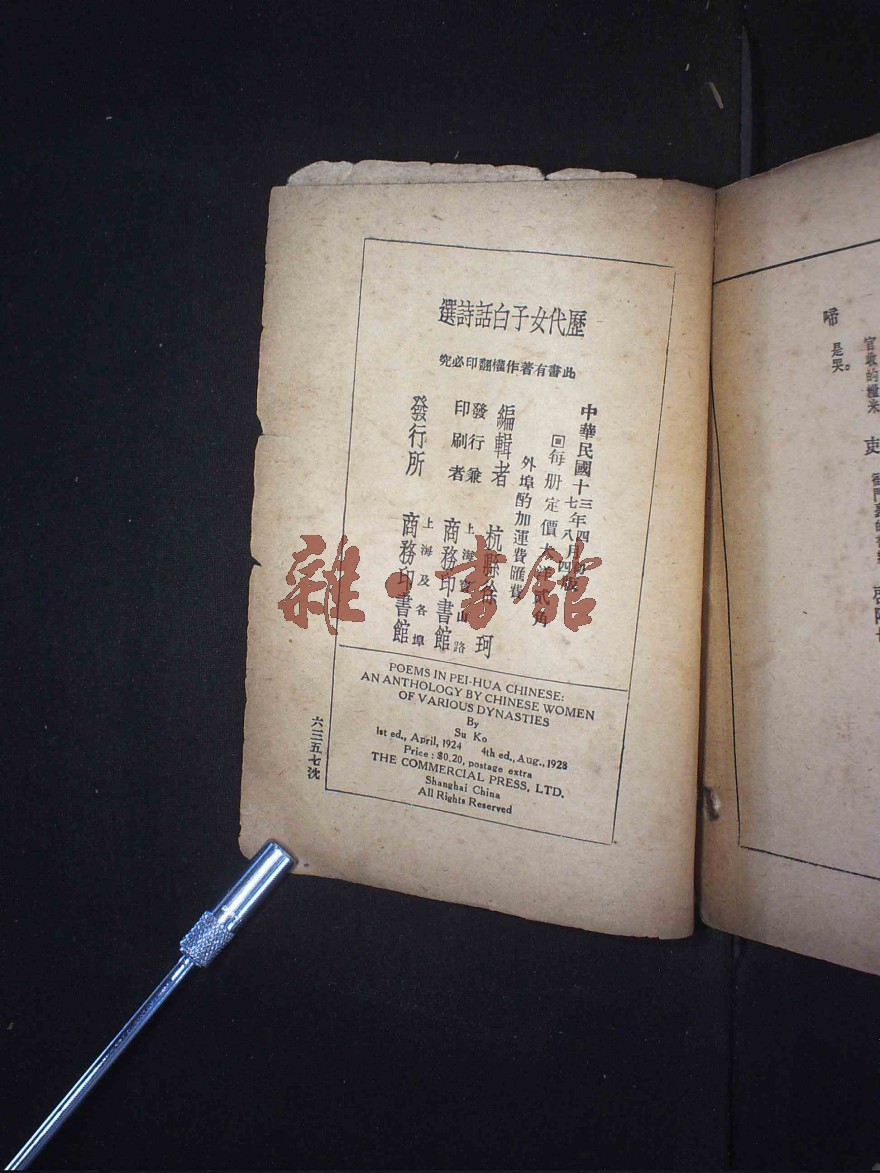 歷代女子白話詩選
此書有著作權翻印必究
中華民國十三年四月初版
十七年八月四版
回每册定價大洋貳角
外埠酌加運費匯費
編輯者 杭縣徐珂
發行兼印刷者 上海寶山路 商務印書館
發行所 上海及各埠 商務印書館
POEMS IN PEI-HUA CHINESE:
AN ANTHOLOGY BY CHINESE WOMEN
OF VARIOUS DYNASTIES
By
Su Ko
1st ed., April, 1924 4th ed., Aug., 1928
Price: $0.20, postage extra
THE COMMERCIAL PRESS, LTD.
Shanghai China
All Rights Reserved
六三五七沈
啼 是哭。
官收的糧米
吏
雜·書館